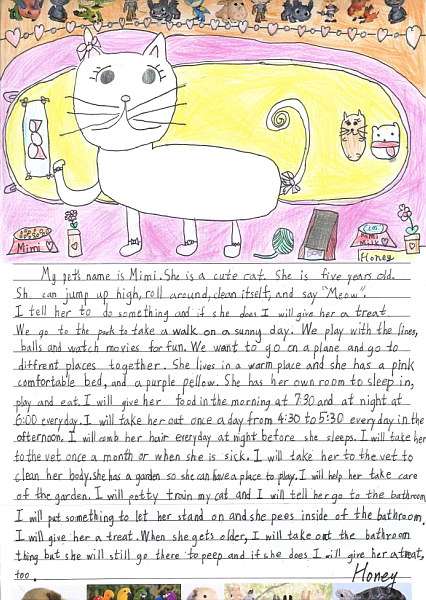 Mimi
Mimi
Milk
Honey
My pet's name is Mimi. She is a cute cat. She is five years old.
Sh can jump up high, roll around, clean itself, and say "Meow".
I tell her to do something and if she does I will give her a treat
We go to the park to take a walk on a sunny day. We play with the lines,
balls and watch movies for fun. We want to go on a plane and go to
diffrent places together. She lives in a warm place and she has a pink
comfortable bed, and a purple pellow. She has her own room to sleep in,
play and eat. I will give her food in the morning at 7:30 and at night at
6:00 everyday. I will take her out once a day from 4:30 to 5:30 everyday in the
ofternoon. I will comb her hair everyday at night before she sleeps. I will take her
to the vet once a month or when she is sick. I will take her to the vet to
clean her body. She has a garden so she can have a place to play. I will help her take care
of the garden. I will potty train my cat and I will tell her go to the bathroom
I will put something to let her stand on and she pees inside of the bathroom.
I will give her a treat. When she gets older, I will take out the bathroom
thing but she will still go there to peep and if she does I will give her a treat,
too.
Honey